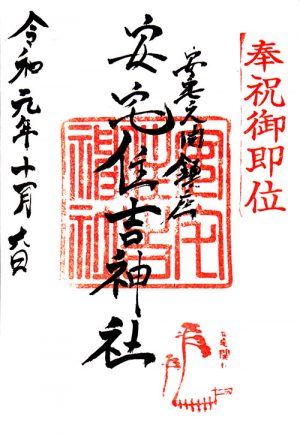 奉祝御即位
安宅之関鎮座
安宅住吉神社
令和元年十一月六日